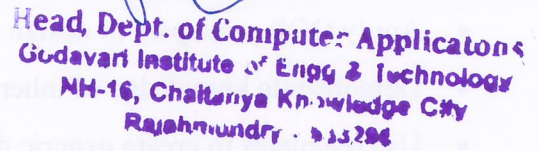 Head, Dept. of Computer Applicatons
Godavari Institute of Engg & Technology
NH-16, Chaitanya Knowledge City
Rajahmundry - 533296